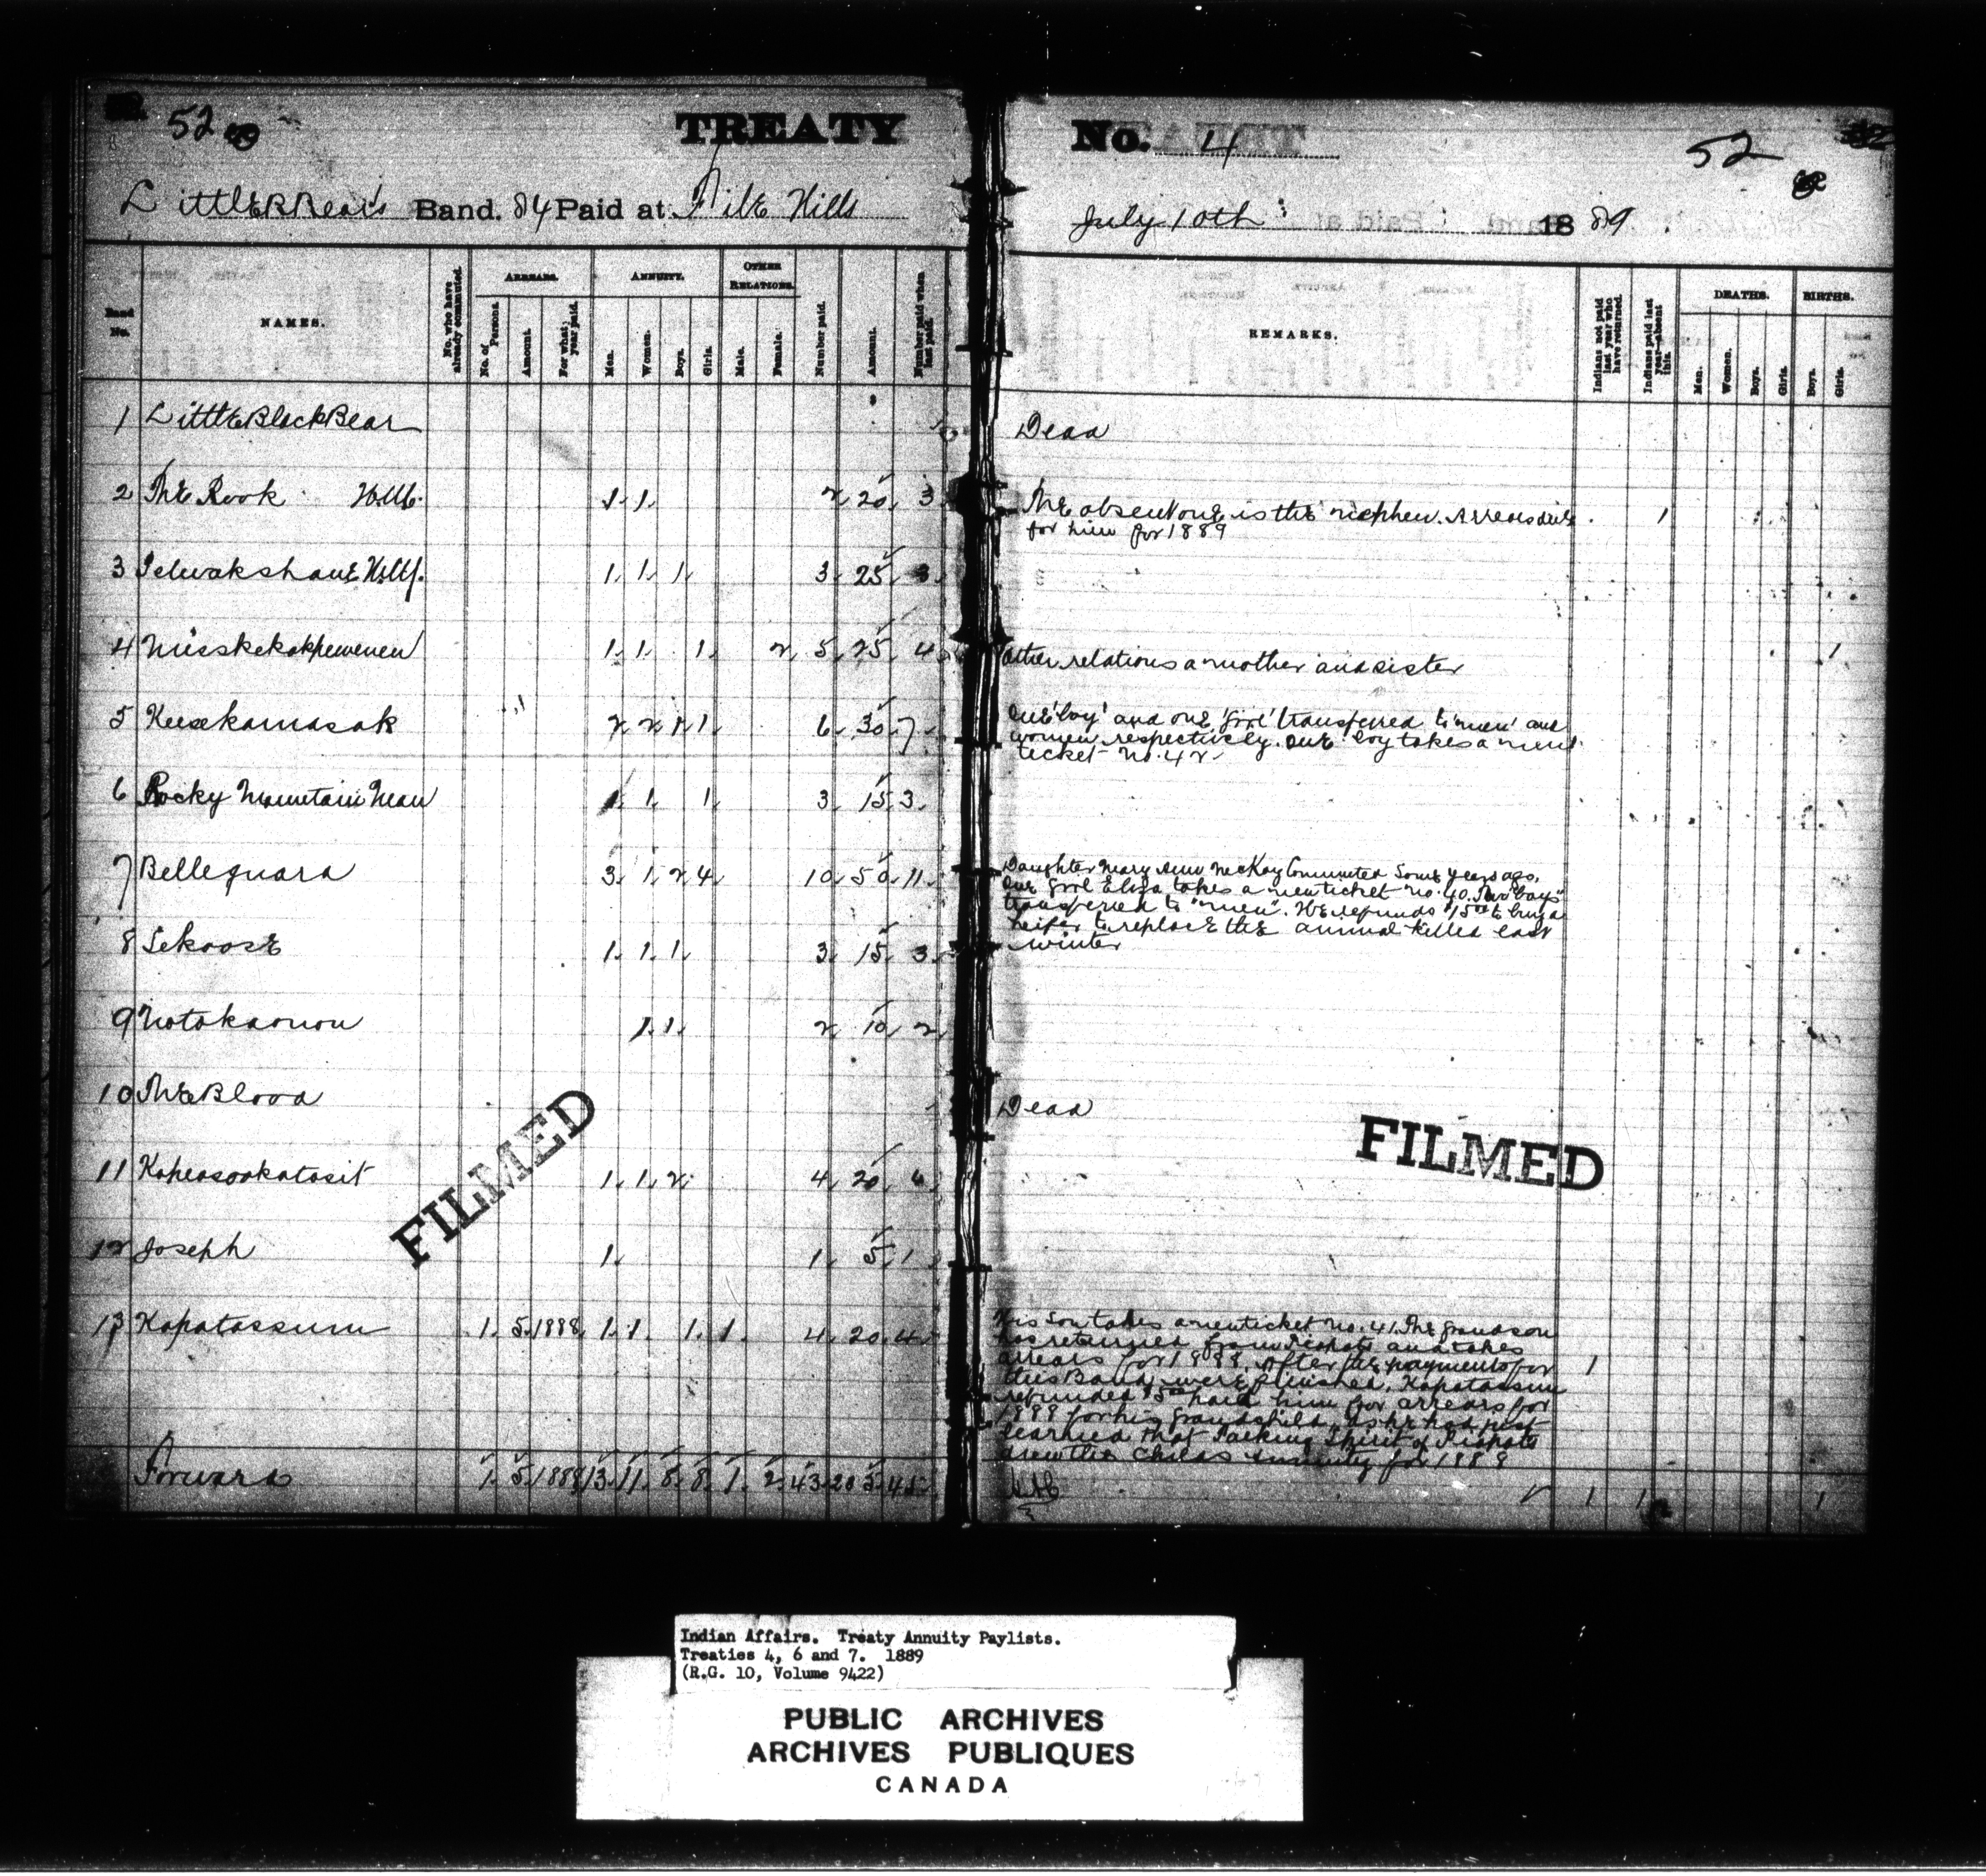 52
TREATY No. 4
52
Little B Bear's Band. 84 Paid at File Hills July 10th 1889
Band No.
NAMES.
No. who have already commuted.
ARREARS.
No. of Persons.
Amount.
For what year paid.
ANNUITY.
Men.
Women.
Boys.
Girls.
OTHER RELATIONS.
Male.
Female.
Number paid.
Amount.
Number paid when last paid.
REMARKS.
Indians not paid last year who have returned.
Indians paid last year—absent this.
DEATHS.
Men.
Women.
Boys.
Girls.
BIRTHS.
Boys.
Girls.
1 Little Black Bear Dead
2 The Rook 1 1 2 20 3 The absent one is the nephew. Arrears due 1
for him for 1889
3 1 1 1 3 25 3
4 1 1 1 2 5 25 4 Other relations a mother and sister 1
5 Keesekamasak 2 2 1 1 6 30 7 One 'boy' and one 'girl' transferred to 'men' and
women respectively. One boy takes a new
ticket No. 42
6 Rocky Mountain Man 1 1 1 3 15 3
7 Belleguard 3 1 2 4 10 50 11 Daughter Mary Ann McKay Commuted some years ago.
One girl Eliza takes a new ticket No. 40. Two "boys"
transferred to "men". He refunds $15.00 to buy a
heifer to replace the animal killed last
winter
8 Sekoose 1 1 1 3 15 3
9 Notokaonou 1 1 2 10 2
10 The Blood Dead
11 Kapeasookatosit 1 1 2 4 20 6
12 Joseph 1 1 5 1
13 Kapatassum 1 5 1888 1 1 1 1 4 20 4 His son takes a new ticket No. 41. The grandson
has returned from Piapots and takes
arrears for 1888. After the payments for 1
this Band were finished, Kapatassum
refunded $5.00 paid him for arrears for
1888 for his grandchild, as he had just
learned that Talking Spirit of Piapots
drew the childs annuity for 1888
Forward 1 5 1888 13 11 8 8 1 2 43 205 45 1 1 1
FILMED
FILMED
Indian Affairs. Treaty Annuity Paylists.
Treaties 4, 6 and 7. 1889
(R.G. 10, Volume 9422)
PUBLIC ARCHIVES
ARCHIVES PUBLIQUES
CANADA